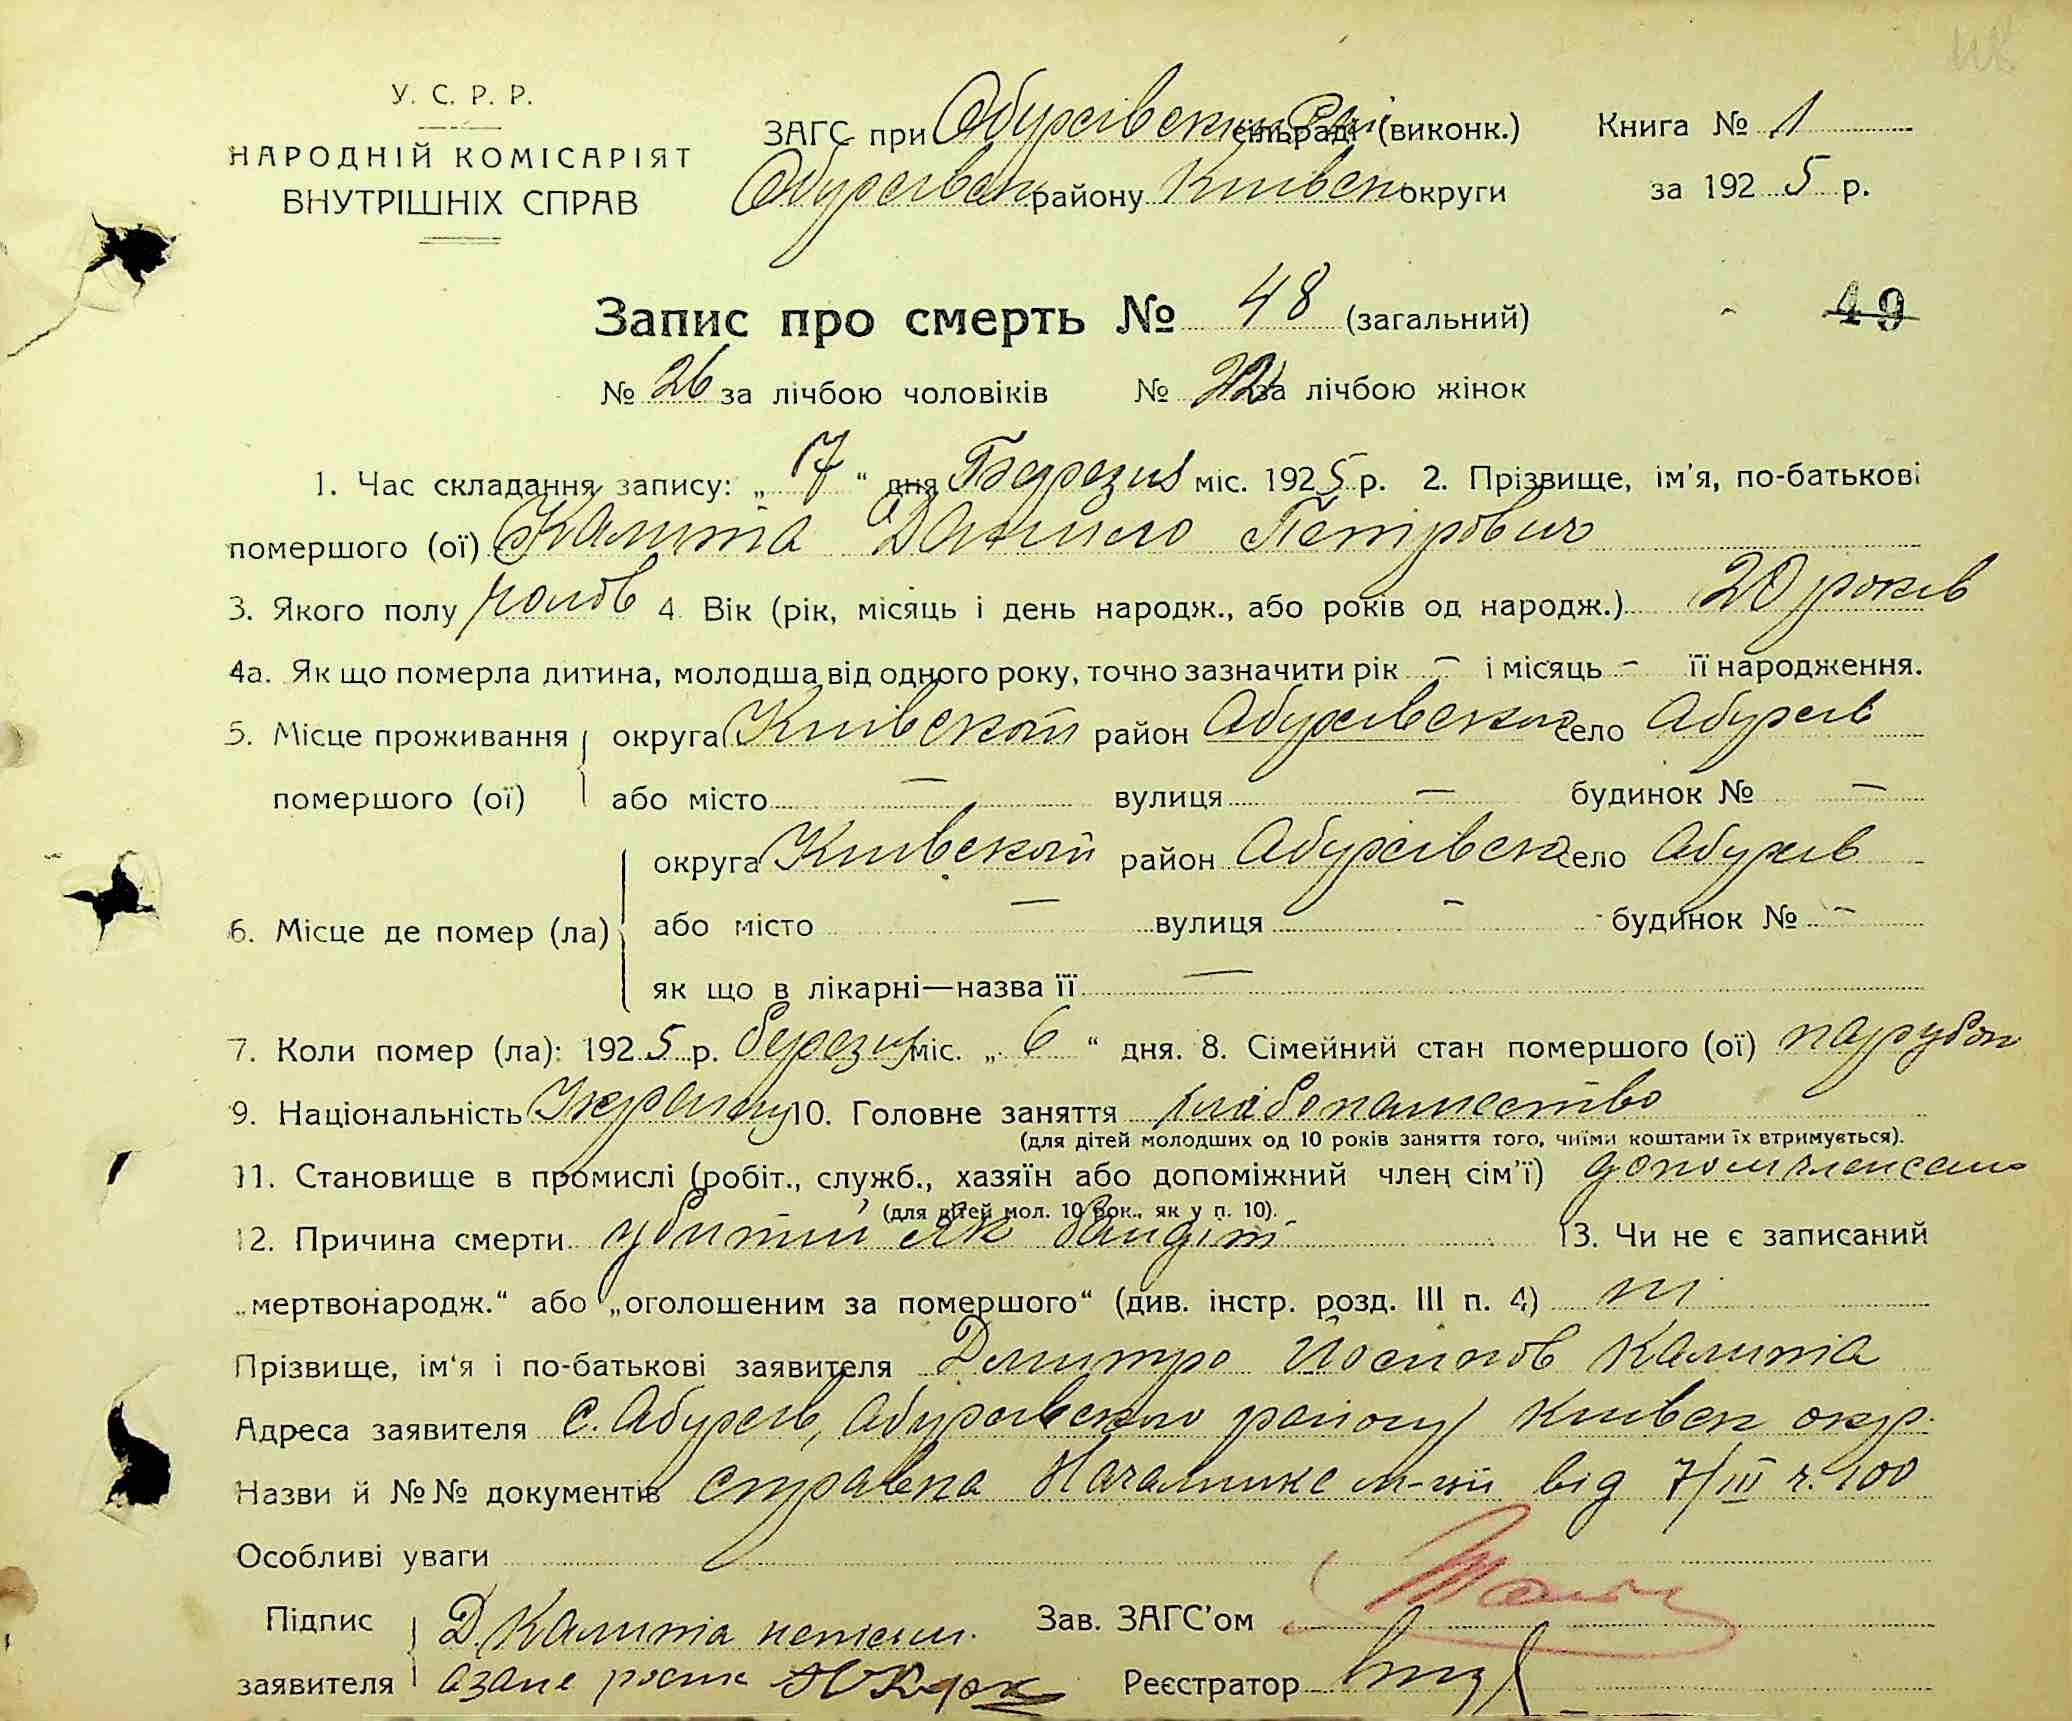 У. С. Р. Р.
НАРОДНІЙ КОМІСАРІЯТ
ВНУТРІШНІХ СПРАВ
ЗАГС при Обухівском сільраді (виконк.) Книга № 1
Обухівськ району Київськ округи за 1925 р.
Запис про смерть № 48 (загальний) 49
№ 26 за лічбою чоловіків № 22 за лічбою жінок
1. Час складання запису: „ 7 “ дня Березня міс. 1925 р. 2. Прізвище, ім'я, по-батькові
помершого (ої) Калита Данило Петрович
3. Якого полу чолов 4. Вік (рік, місяць і день народж., або років од народж.) 20 років
4а. Як що померла дитина, молодша від одного року, точно зазначити рік — і місяць — її народження.
5. Місце проживання округа Київской район Абухівского село Абухів
помершого (ої) або місто — вулиця — будинок № —
округа Київской район Абухівск село Абухів
6. Місце де помер (ла) або місто — вулиця — будинок № —
як що в лікарні—назва її —
7. Коли помер (ла): 1925 р. березня міс. „ 6 “ дня. 8. Сімейний стан помершого (ої) парубок
9. Національність Україн 10. Головне заняття хлібопашество
(для дітей молодших од 10 років заняття того, чиїми коштами їх втримується).
11. Становище в промислі (робіт., служб., хазяїн або допоміжний член сім'ї) допом член сем
(для дітей мол. 10 рок., як у п. 10).
12. Причина смерти убитий як бандіт 13. Чи не є записаний
„мертвонародж.“ або „оголошеним за помершого“ (див. інстр. розд. III п. 4) ні
Прізвище, ім'я і по-батькові заявителя Дмитро Йосипов Калита
Адреса заявителя с. Абухів, Абухівского району Київск окр.
Назви й №№ документів справка Начальника м-ції від 7/III ч. 100
Особливі уваги
Підпис Д. Калита неписм. Зав. ЗАГС'ом
заявителя азане росп Реєстратор